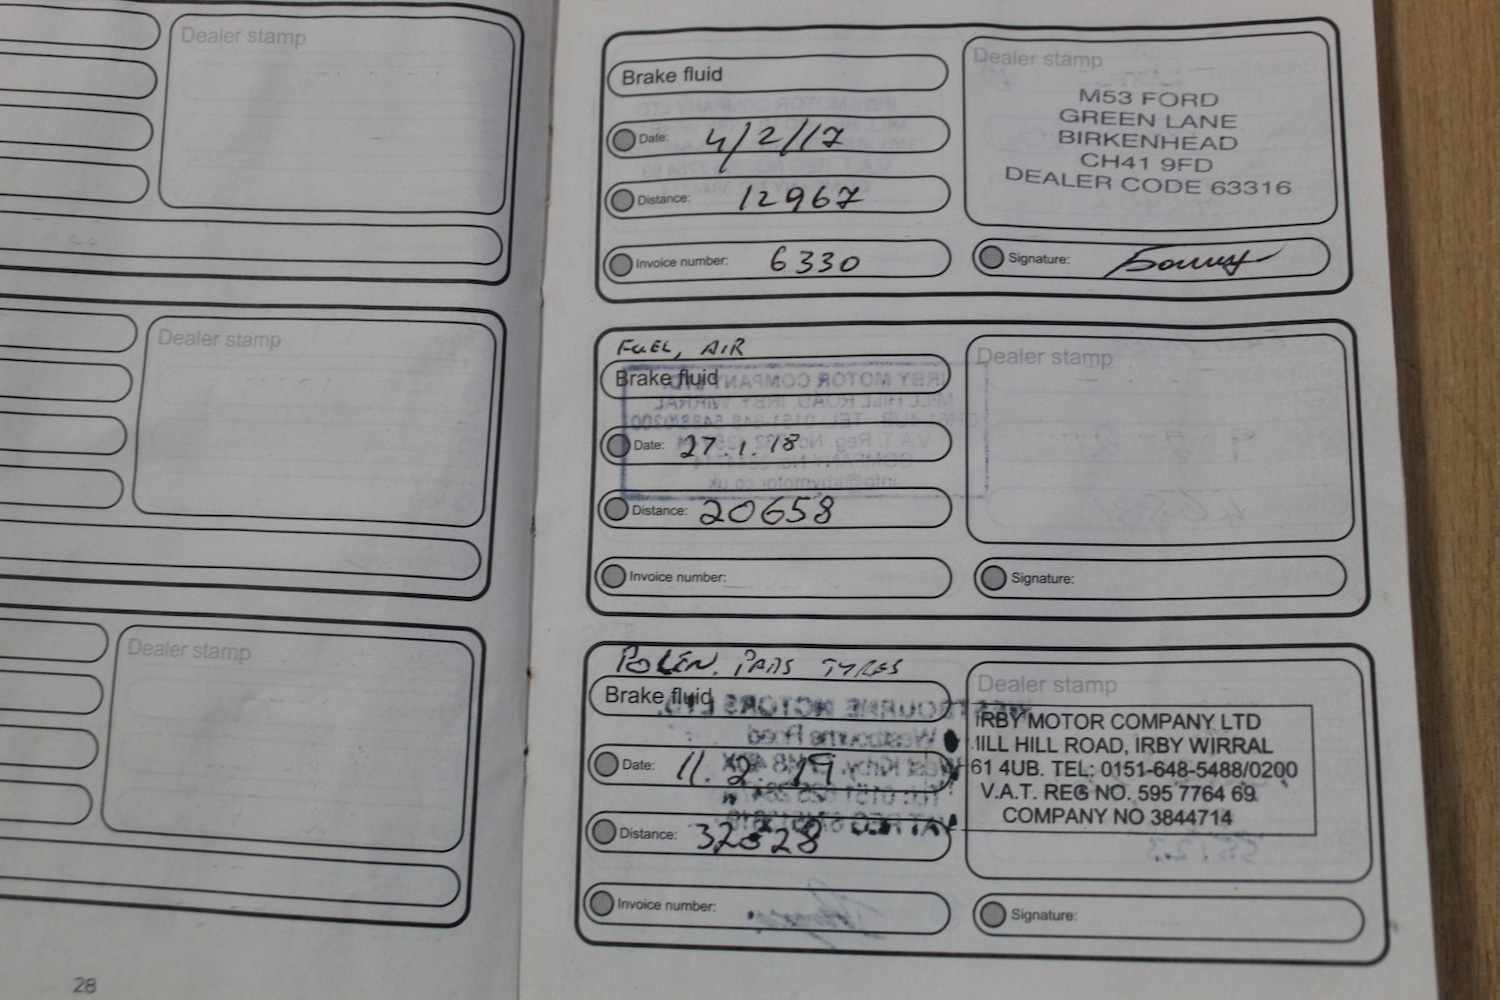 Dealer stamp
Dealer stamp
Dealer stamp
28
Brake fluid
Date: 4/2/17
Distance: 12967
Invoice number: 6330
Dealer stamp
M53 FORD
GREEN LANE
BIRKENHEAD
CH41 9FD
DEALER CODE 63316
Signature:
FUEL, AIR
Brake fluid
Date: 27.1.18
Distance: 20658
Invoice number:
Dealer stamp
Signature:
POLEN. PADS TYRES
Brake fluid
Date: 11.2.19
Distance: 32828
Invoice number:
Dealer stamp
IRBY MOTOR COMPANY LTD
MILL HILL ROAD, IRBY WIRRAL
61 4UB. TEL: 0151-648-5488/0200
V.A.T. REG NO. 595 7764 69
COMPANY NO 3844714
Signature: